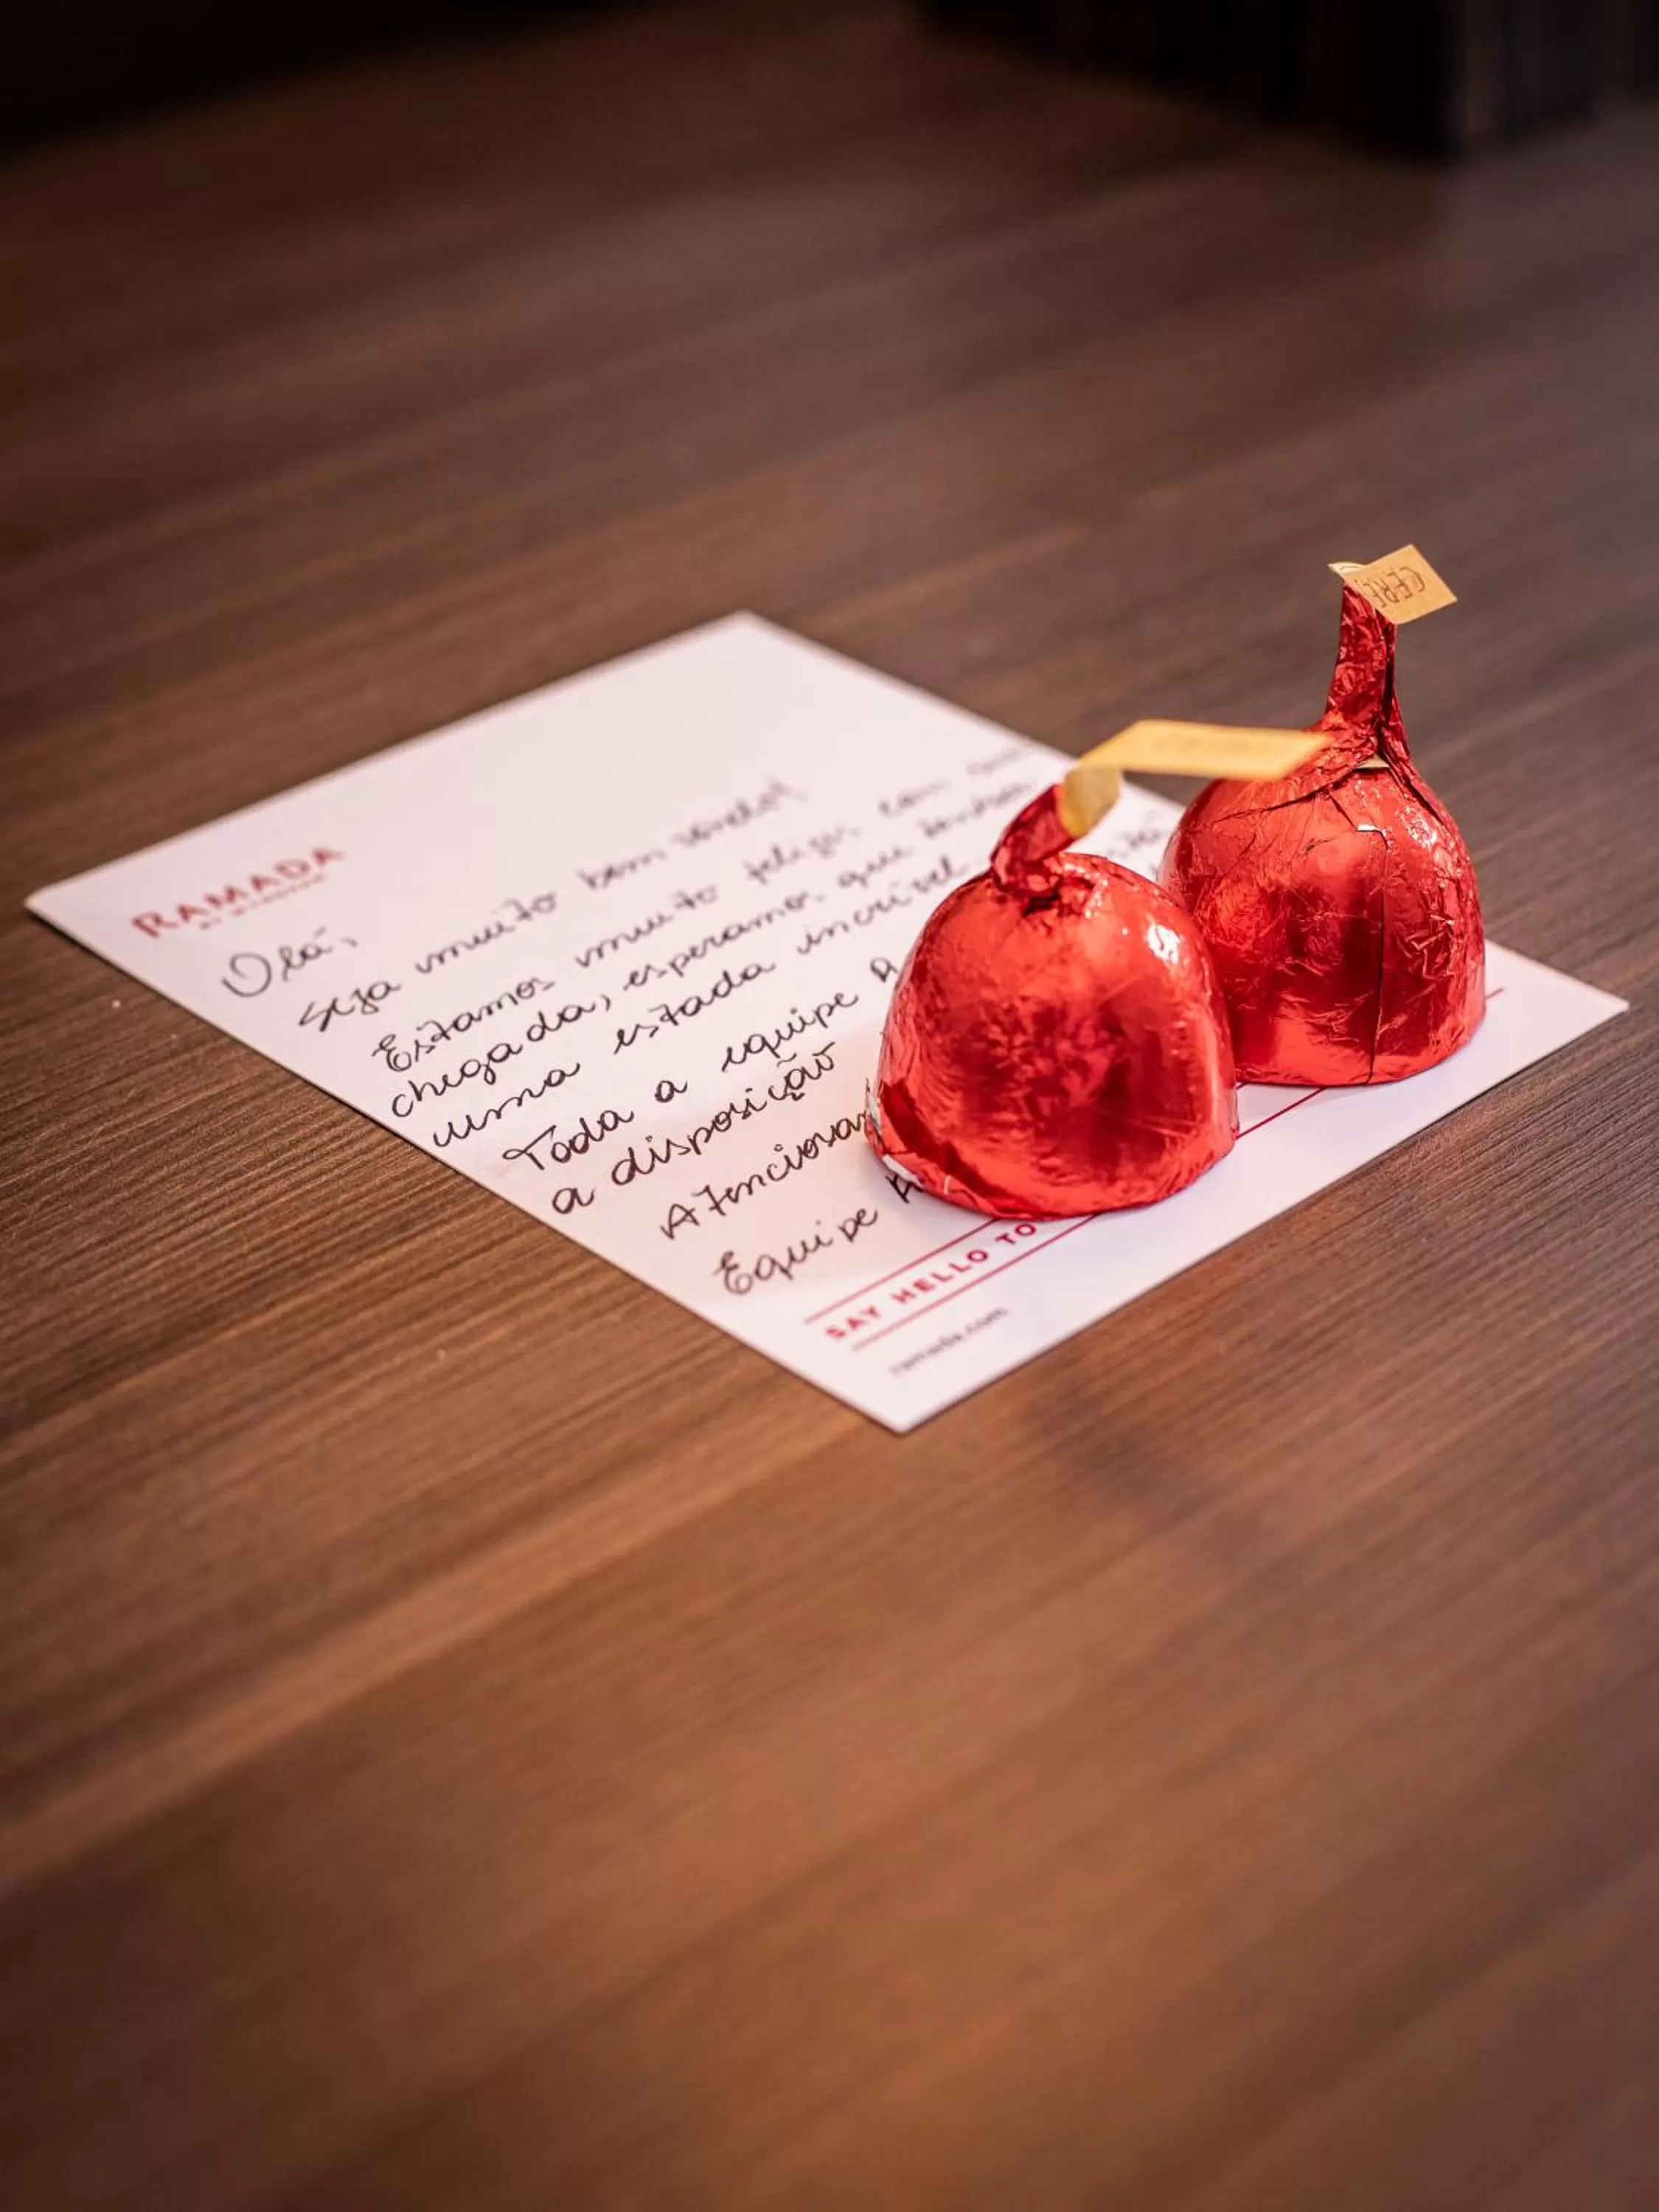 RAMADA
BY WYNDHAM
Olá,
Seja muito bem vindo!
Estamos muito felizes com sua
chegada, esperamos que tenha
uma estada incrível.
Toda a equipe R está
a disposição
Atenciosa
Equipe R
SAY HELLO TO
ramada.com
CERE